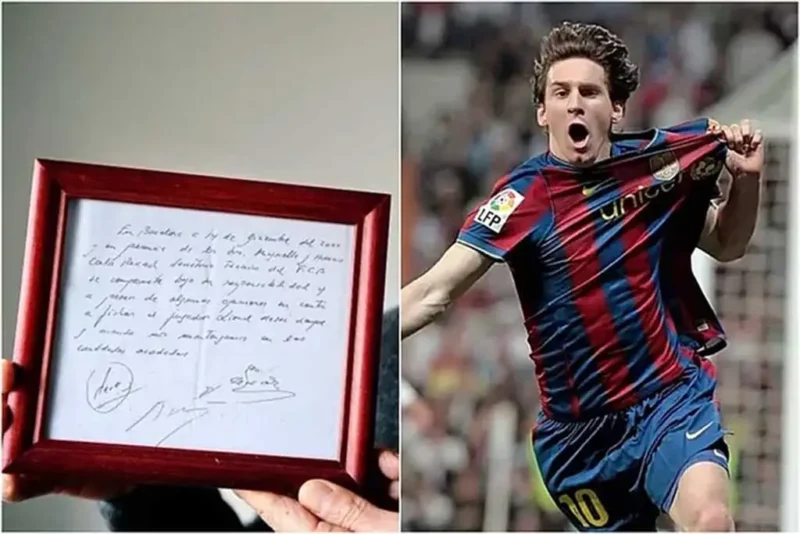 En Barcelona a 14 de diciembre del 2000
y en presencia de los Srs. Minguella y Horacio
Carles Rexach Director Técnico del F.C.B
se compromete bajo su responsabilidad y
a pesar de algunas opiniones en contra
a fichar al jugador Lionel Messi siempre
y cuando nos mantengamos en las
cantidades acordadas
LFP
unicef
10